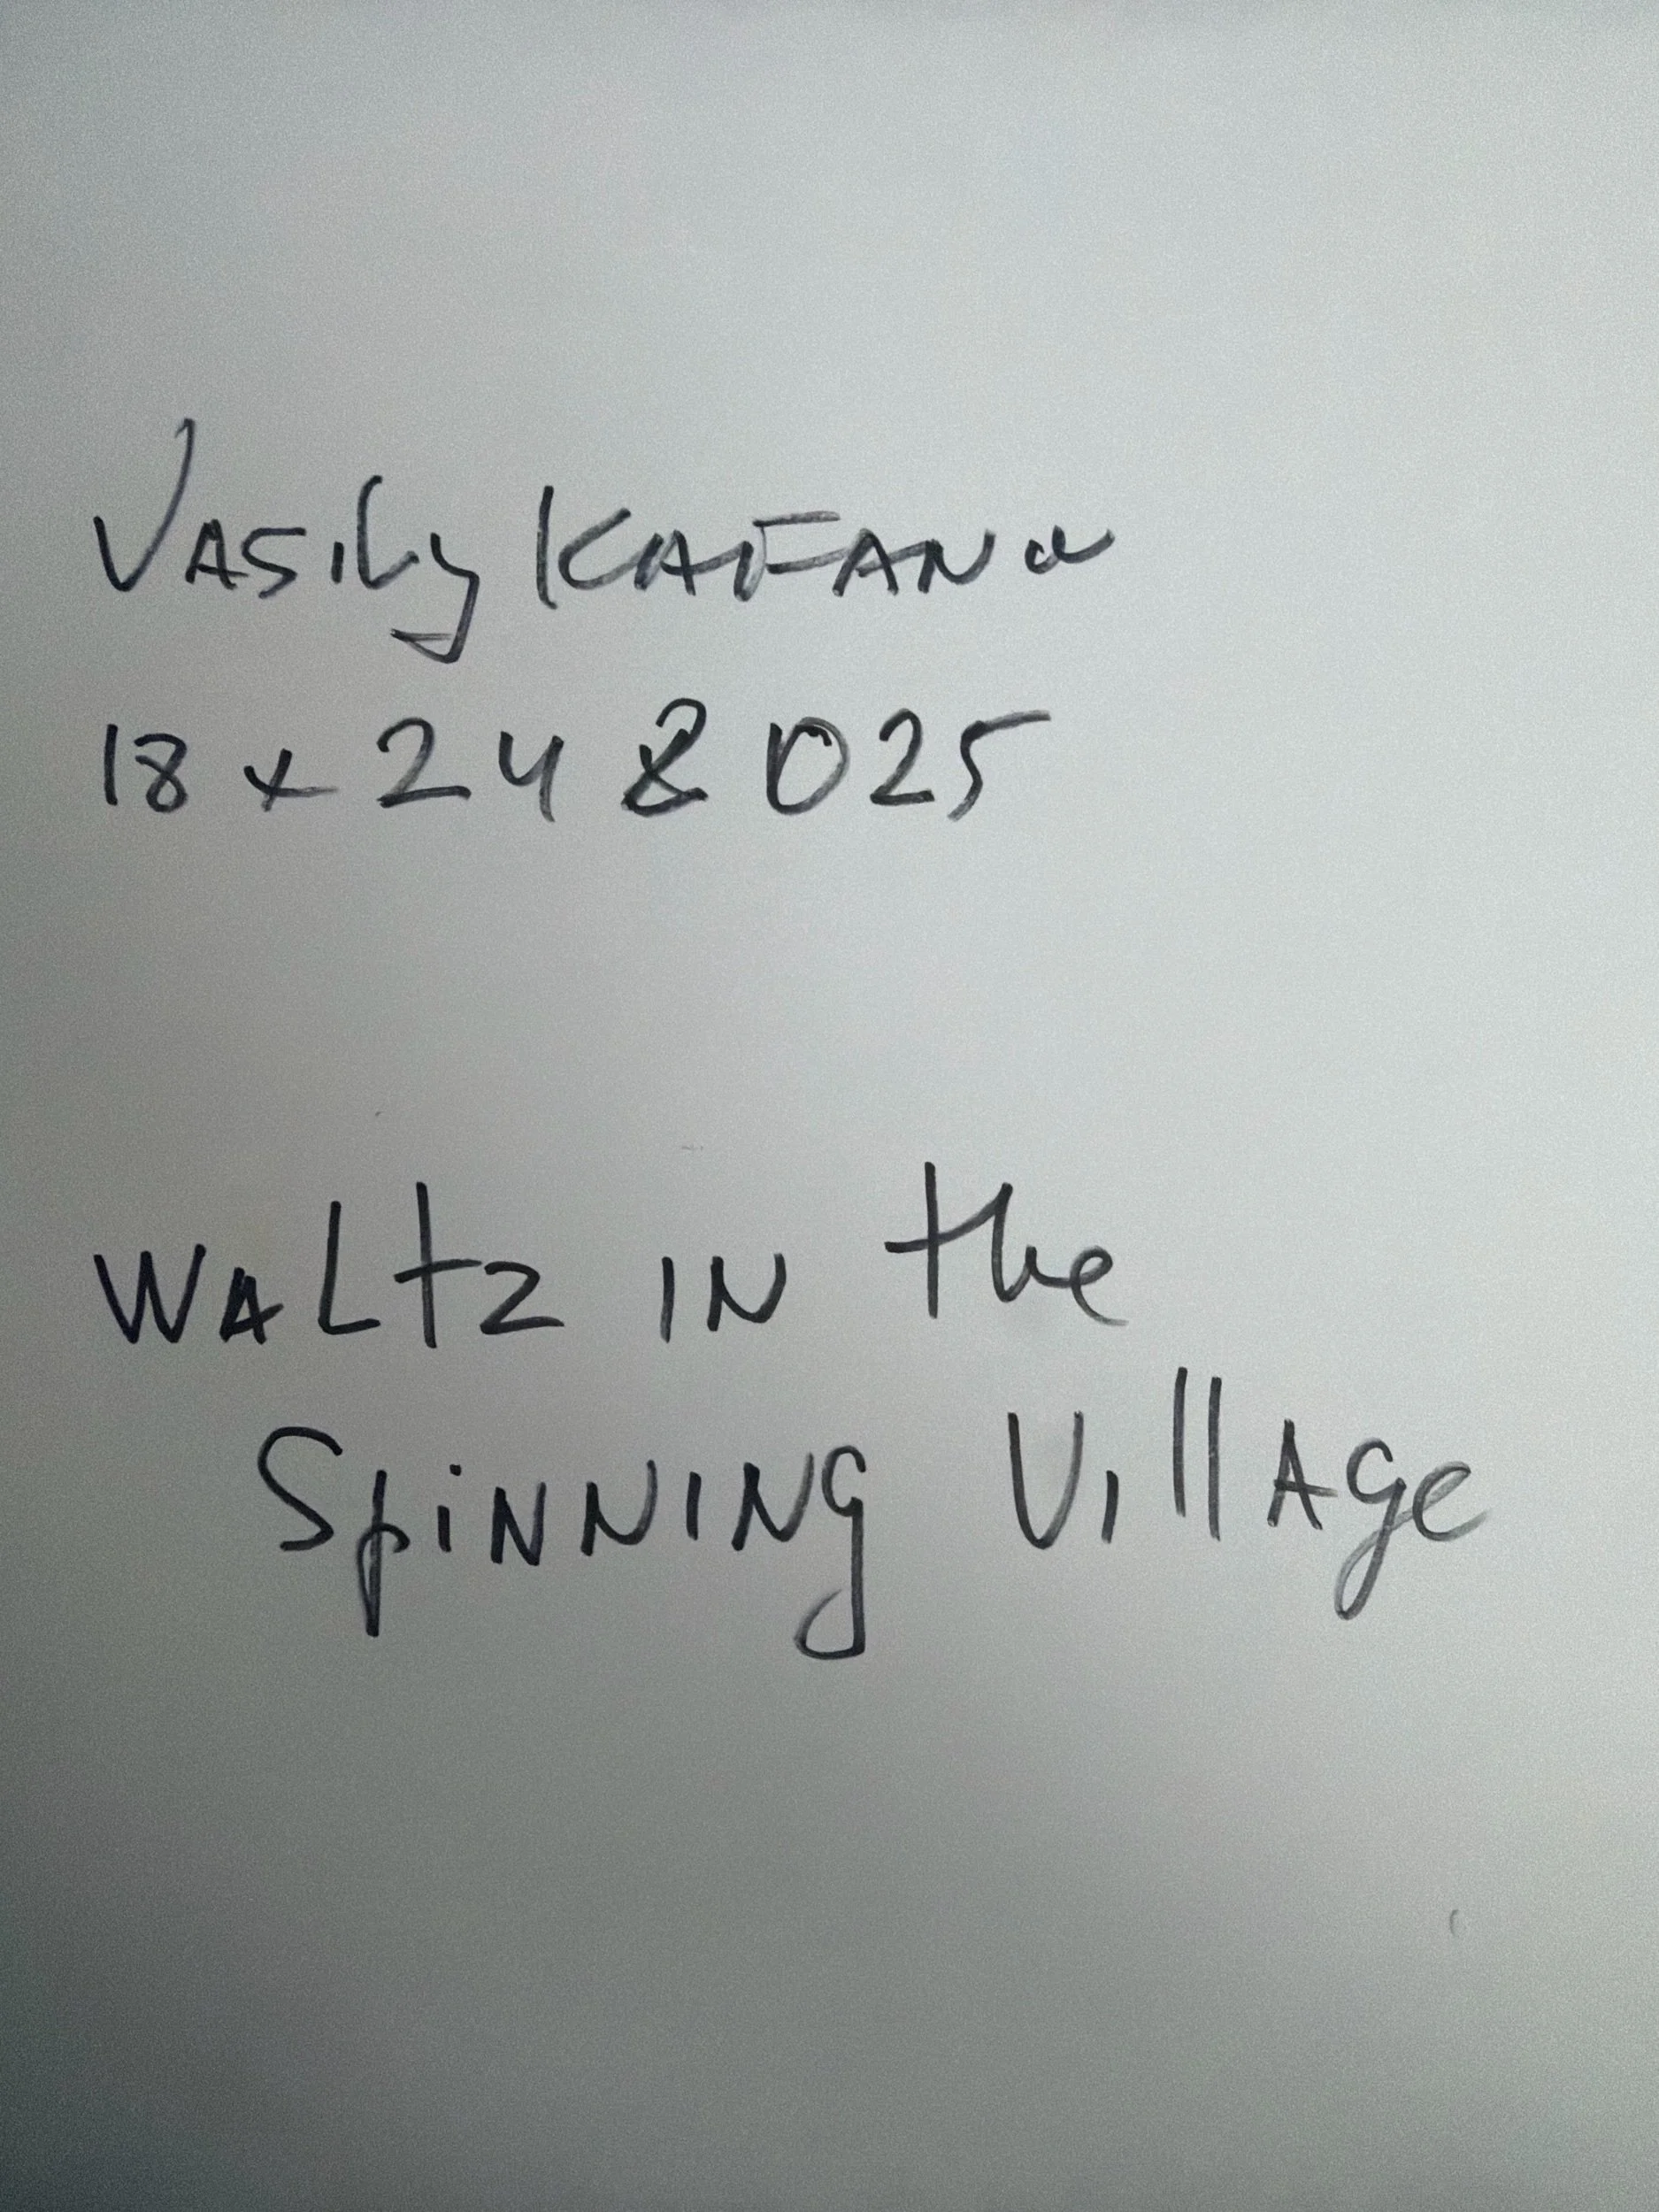 Vasily KAFANa
18 x 24 2025
WALtz IN the
SpiNNING VillAge